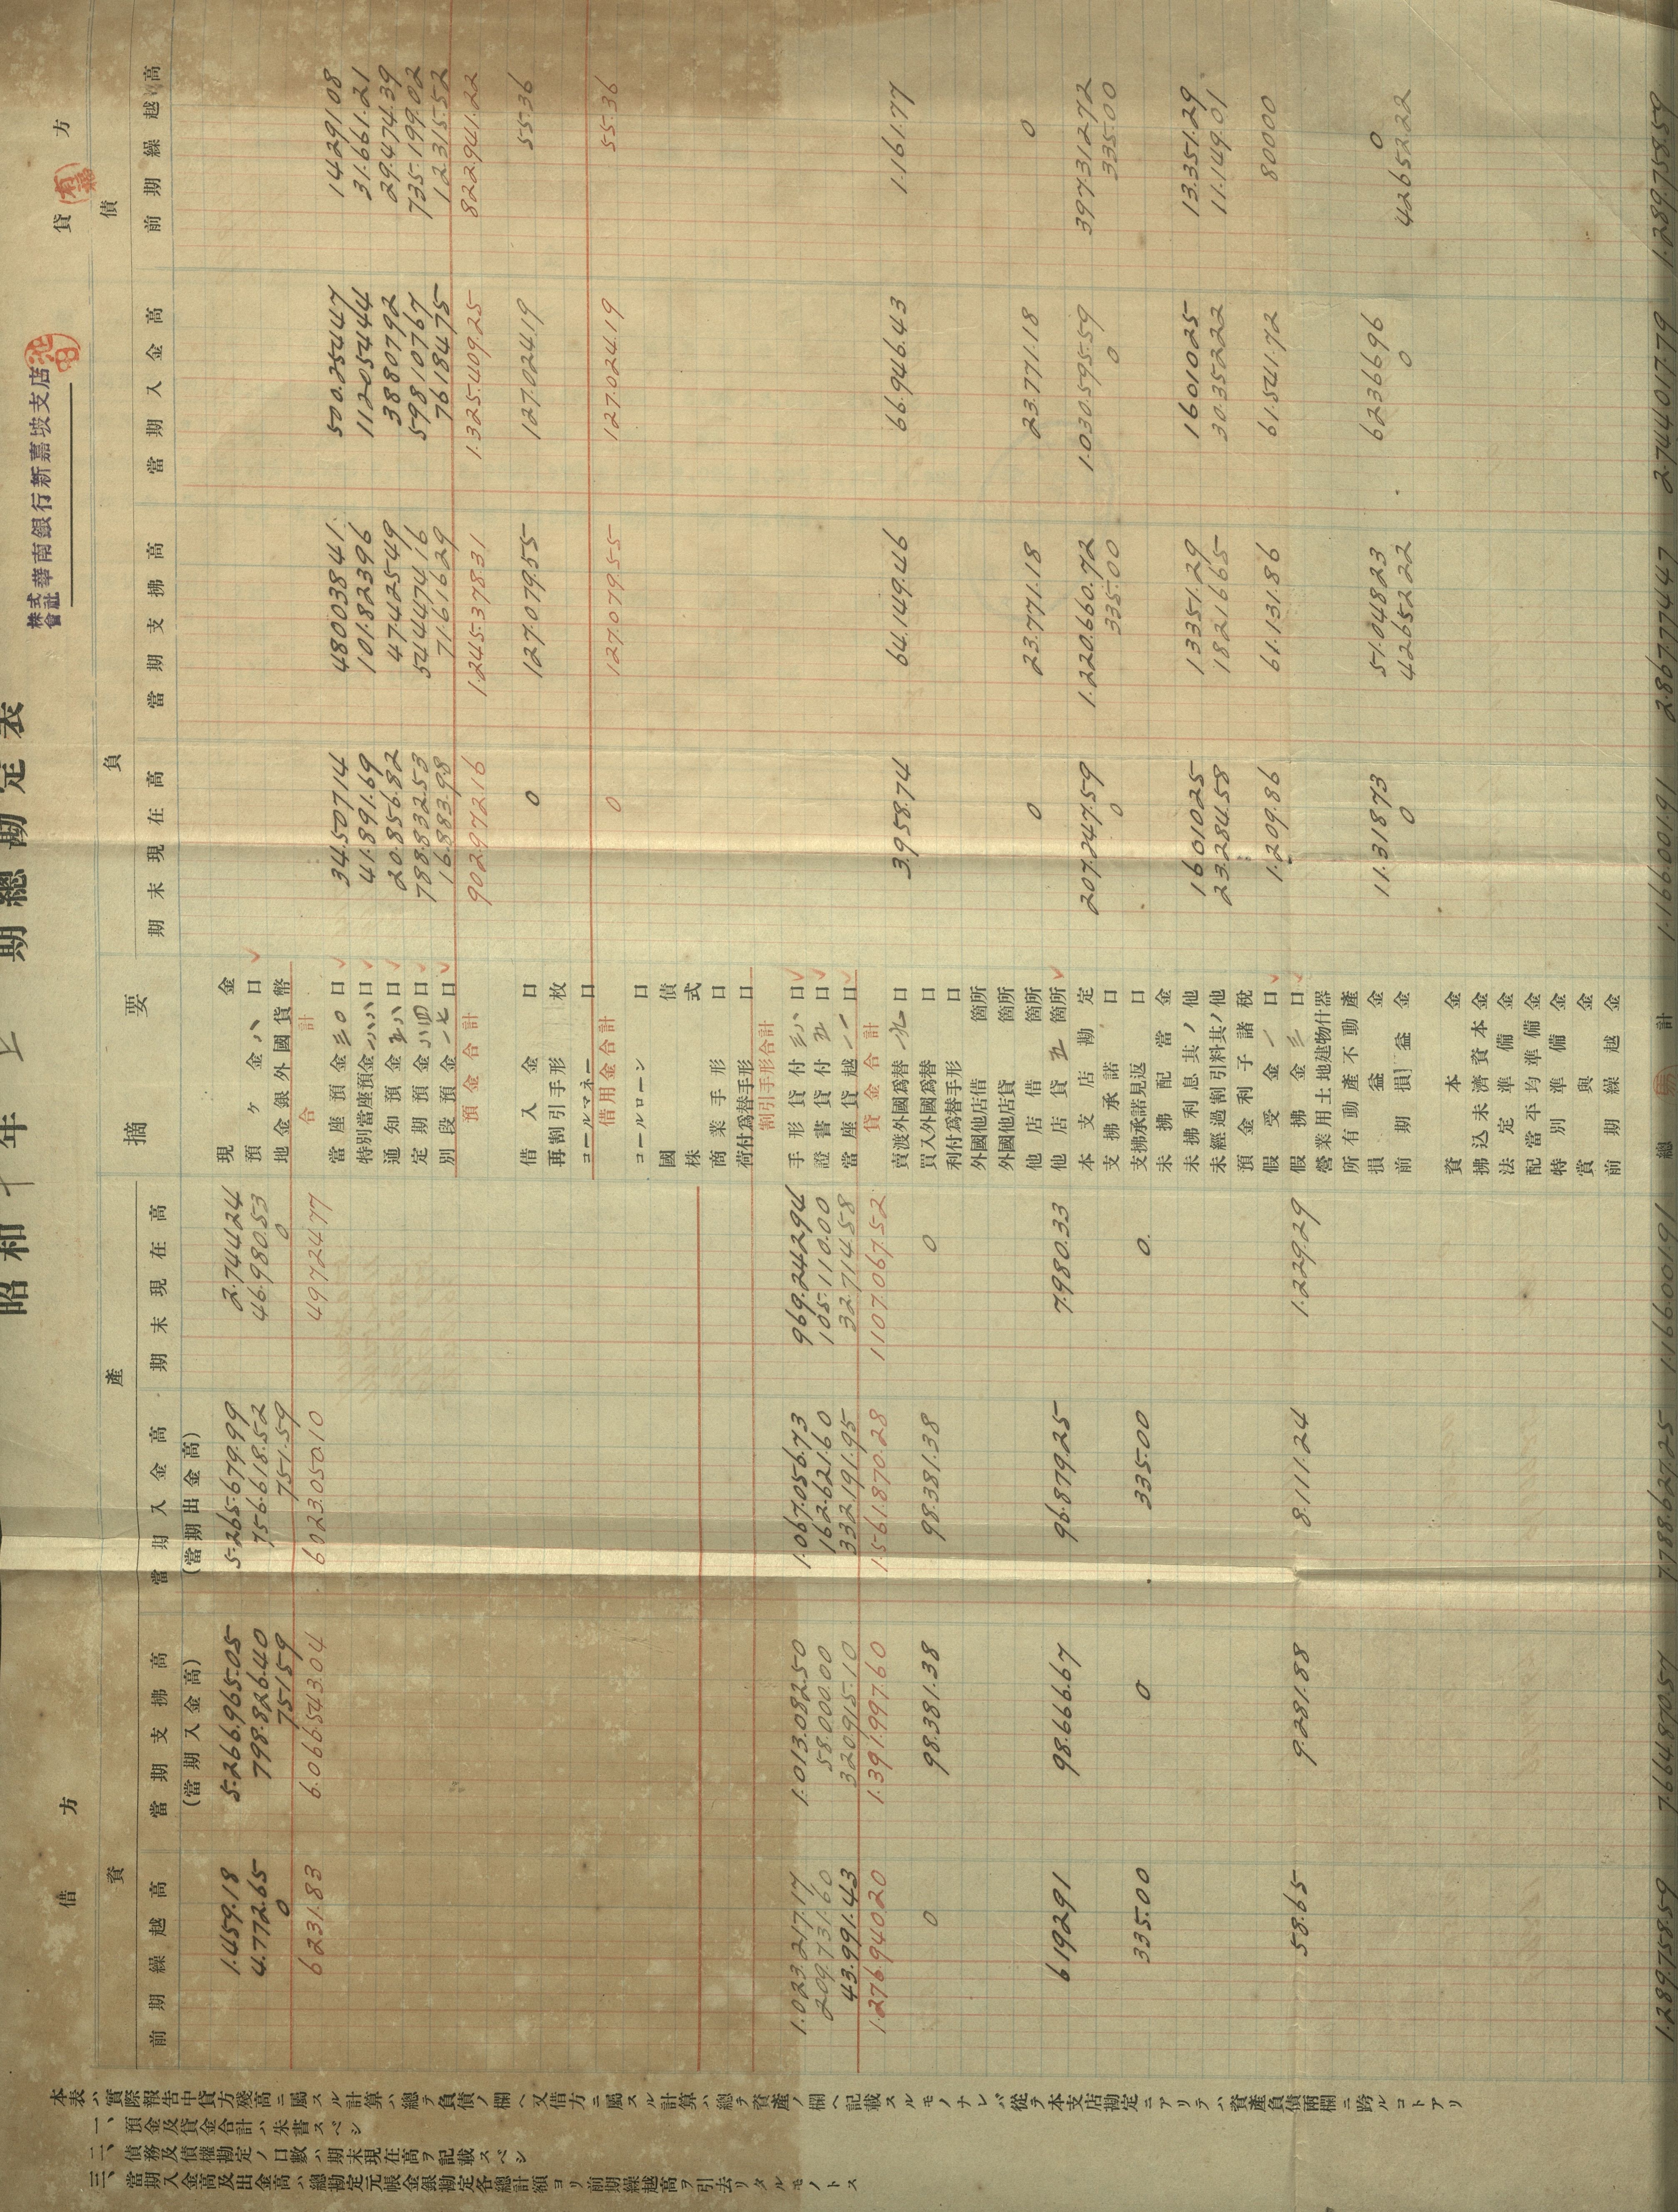 昭和十年上期總勘定表
株式會社華南銀行新嘉坡支店
借方
貸方
資產
摘要
負債
前期繰越高 當期支拂高(當期入金高) 當期入金高(當期出金高) 期末現在高 期末現在高 當期支拂高 當期入金高 前期繰越高
1.459.18 5.266.965.05 5.265.679.99 2.744.24 現金
4.772.65 798.826.40 756.618.52 46.980.53 預ケ金八口
0 751.59 751.59 0 地金銀外國貨幣
6231.83 6.066.543.04 6023.050.10 49.724.77 合計
當座預金三〇口 34.507.14 480.038.41 500.254.47 14.291.08
特別當座預金六八口 41.891.69 101.823.96 112.054.44 31.661.21
通知預金五八口 20.856.82 47.425.49 38.807.92 29.474.39
定期預金八四口 788.832.53 544.474.16 598.107.67 735.199.02
別段預金一七口 16.883.98 71.616.29 76.184.75 12.315.52
預金合計 902.972.16 1.245.378.31 1.325.409.25 822.941.22
借入金口 0 127.079.55 127.024.19 55.36
再割引手形枚
コールマネー口
借用金合計 0 127.079.55 127.024.19 55.36
コールローン口
國債
株式
商業手形口
荷付爲替手形口
割引手形合計
1.023.217.17 1.013.082.50 1.067.056.73 969.242.94 手形貸付三八口
209.731.60 58.000.00 162.621.60 105.110.00 證書貸付五口
43.991.43 320.915.10 332.191.95 32.714.58 當座貸越一一口
1.276.940.20 1.391.997.60 1.561.870.28 1107.067.52 貸金合計
賣渡外國爲替九口 3.958.74 64.149.46 66.946.43 1.161.77
0 98.381.38 98.381.38 0 買入外國爲替口
利付爲替手形口
外國他店借箇所
外國他店貸箇所
他店借箇所 0 23.771.18 23.771.18 0
6192.91 98.666.67 96.879.25 7.980.33 他店貸五箇所
本支店勘定 207.247.59 1.220.660.72 1.030.595.59 397.312.72
支拂承諾口 0 335.00 0 335.00
335.00 0 335.00 0 支拂承諾見返口
未拂配當金
未拂利息其ノ他 16.010.25 13.351.29 16.010.25 13.351.29
未經過割引料其ノ他 23.284.58 18.216.65 30.352.22 11.149.01
預金利子諸税
假受金一口 1.209.86 61.131.86 61.541.72 800.00
58.65 9.281.88 8.111.24 1.229.29 假拂金三口
營業用土地建物什器
所有動產不動產
損益金 11.318.73 51.048.23 62.366.96 0
前期損益金 0 42652.22 0 42652.22
資本金
拂込未濟資本金
法定準備金
配當平均準備金
特別準備金
賞與金
前期繰越金
1.289.758.59 7.664.870.57 7.788.627.25 1.166.001.91 總計 1.166.001.91 2.867.774.47 2.744.017.79 1.289.758.59
本表ハ實際報告中貸方殘高ニ屬スル計算ハ總テ負債ノ欄ヘ又借方ニ屬スル計算ハ總テ資產ノ欄ヘ記載スルモノナレバ從テ本支店勘定ニアリテハ資產負債兩欄ニ跨ルコトアリ
一、預金及貸金合計ハ朱書スベシ
二、債務及債權勘定ノ口數ハ期末現在高ヲ記載スベシ
三、當期入金高及出金高ハ總勘定元帳金銀勘定各總計額ヨリ前期繰越高ヲ引去リタルモノトス